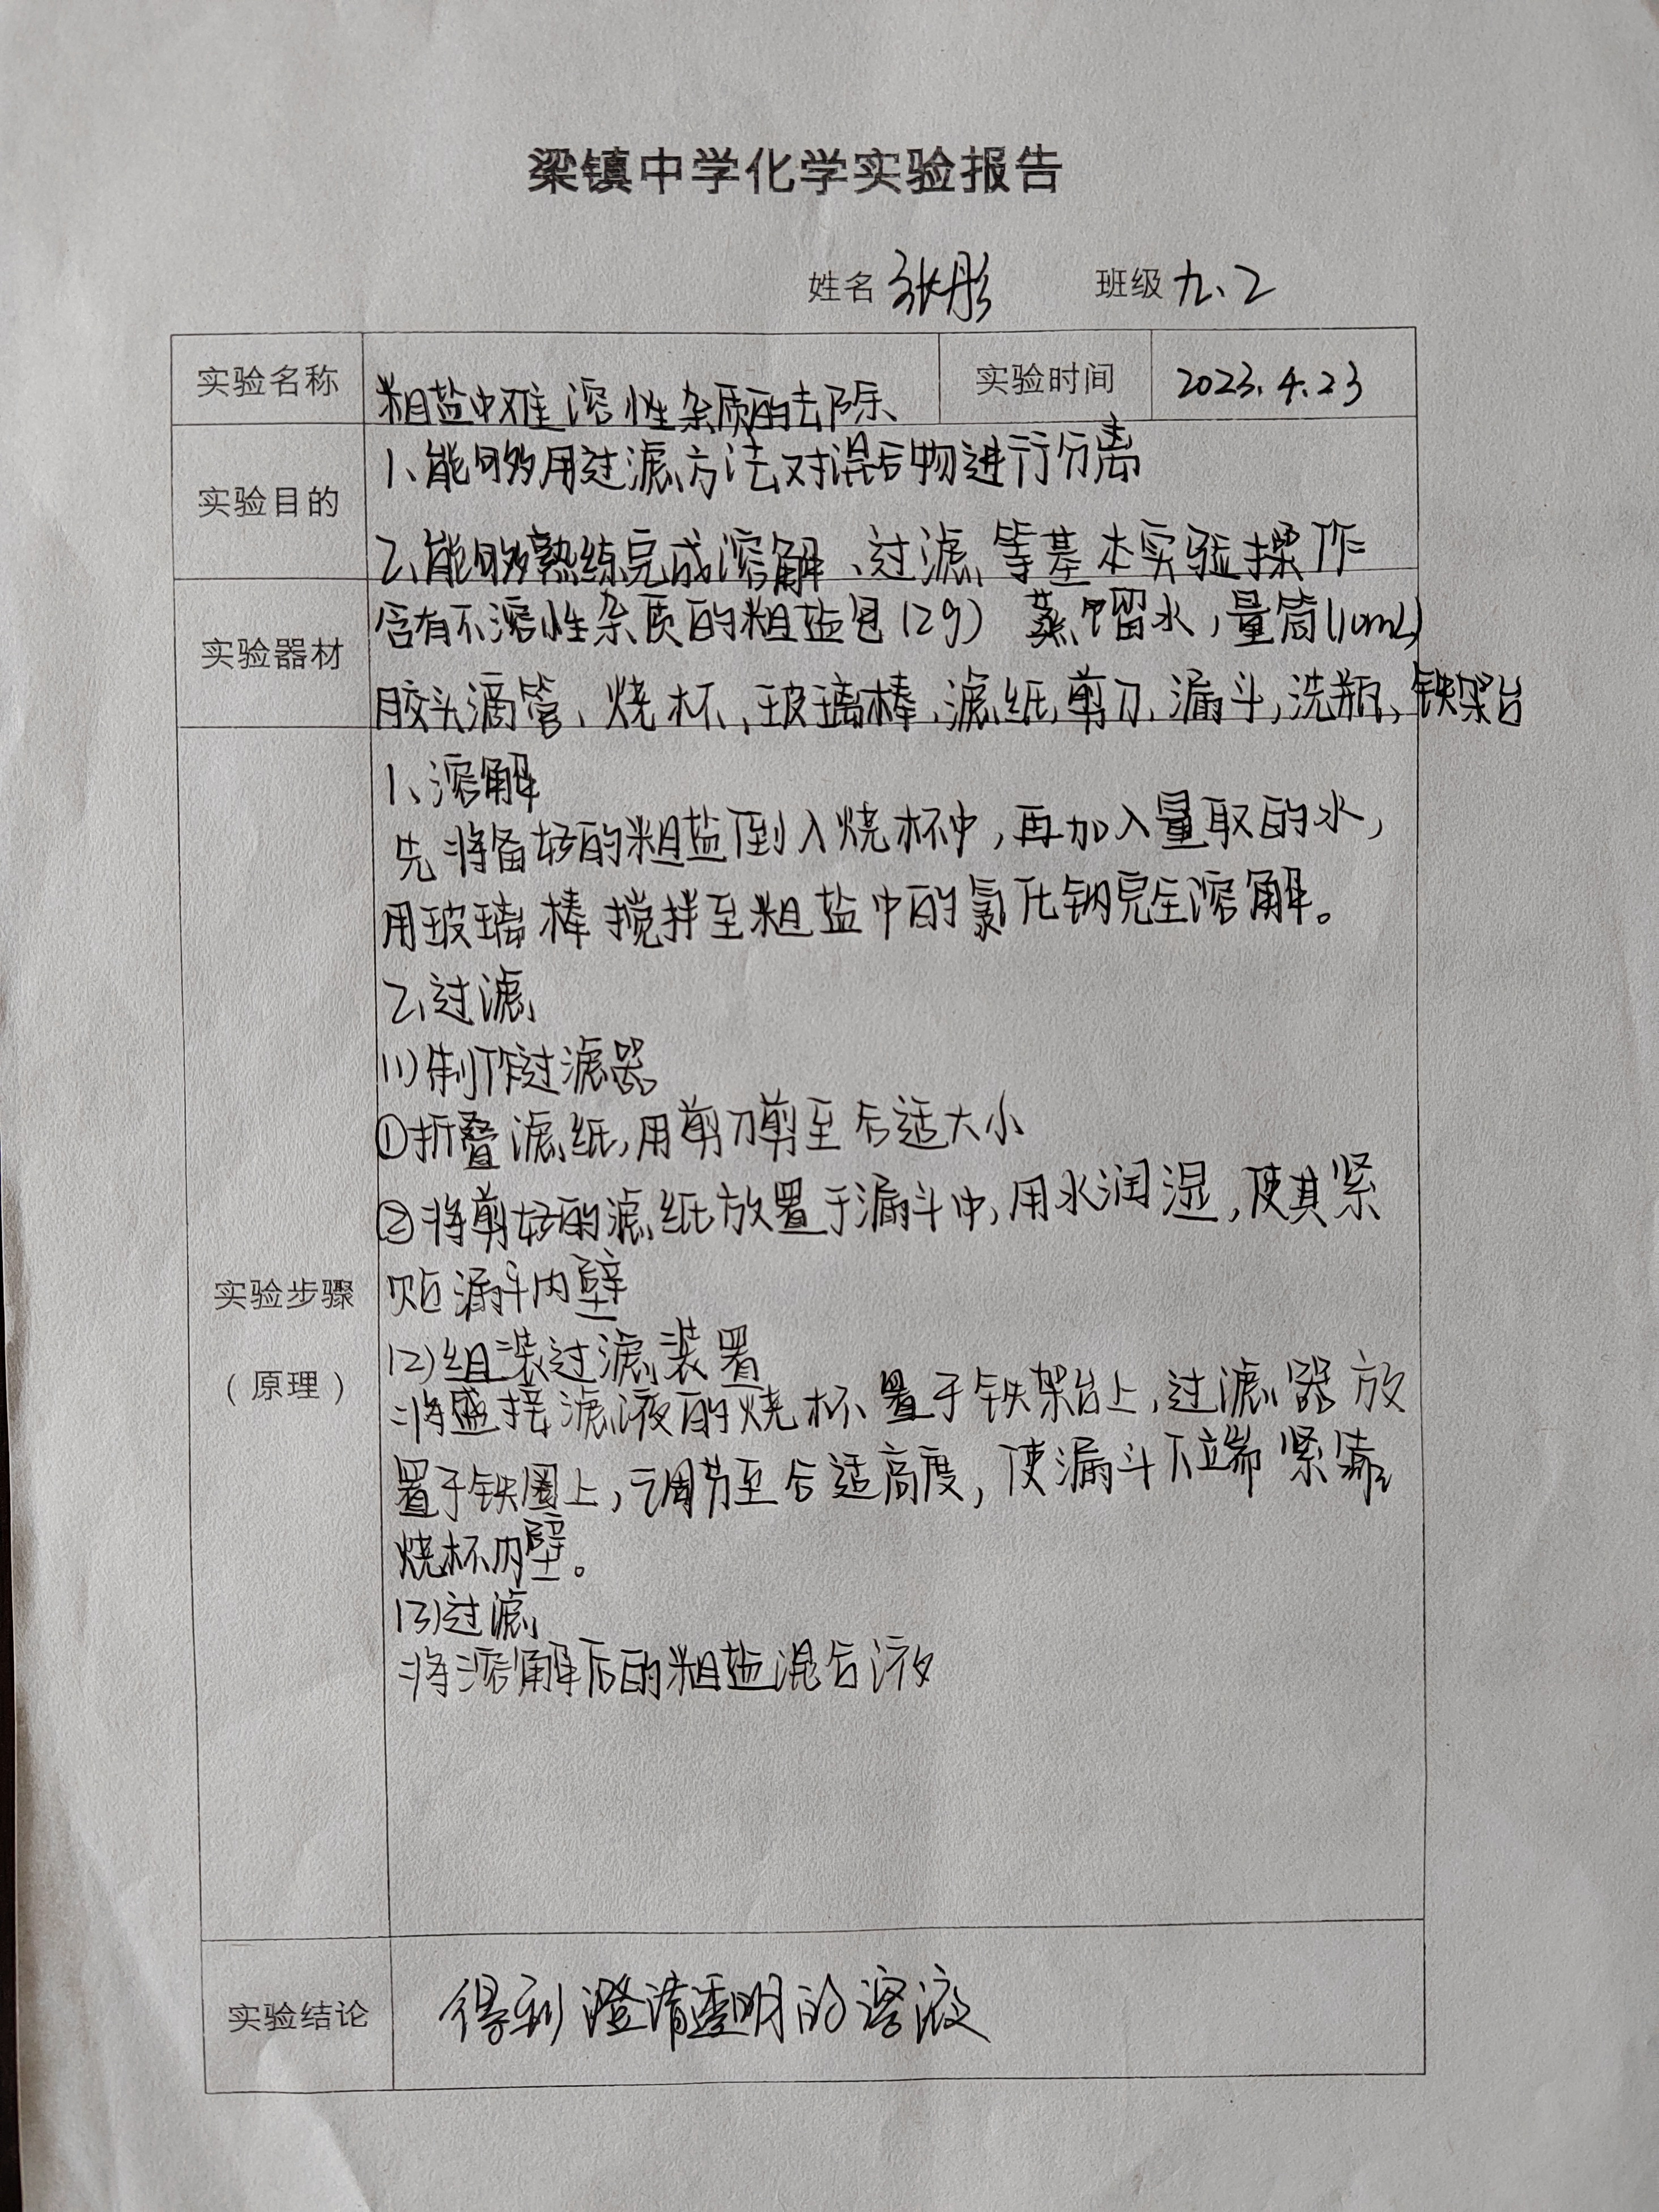 梁镇中学化学实验报告
姓名 张彤 班级 九、2
实验名称 粗盐中难溶性杂质的去除 实验时间 2023.4.23
实验目的
1、能够用过滤方法对混合物进行分离
2、能够熟练完成溶解、过滤等基本实验操作
实验器材
含有不溶性杂质的粗盐包(2g) 蒸馏水,量筒(10mL)
胶头滴管、烧杯、玻璃棒、滤纸、剪刀、漏斗,洗瓶、铁架台
实验步骤
(原理)
1、溶解
先将备好的粗盐倒入烧杯中,再加入量取的水,
用玻璃棒搅拌至粗盐中的氯化钠完全溶解。
2、过滤
(1)制作过滤器
①折叠滤纸,用剪刀剪至合适大小
②将剪好的滤纸放置于漏斗中,用水润湿,使其紧
贴漏斗内壁
(2)组装过滤装置
将盛接滤液的烧杯置于铁架台上,过滤器放
置于铁圈上,调节至合适高度,使漏斗下端紧靠
烧杯内壁。
(3)过滤
将溶解后的粗盐混合液
实验结论 得到澄清透明的溶液